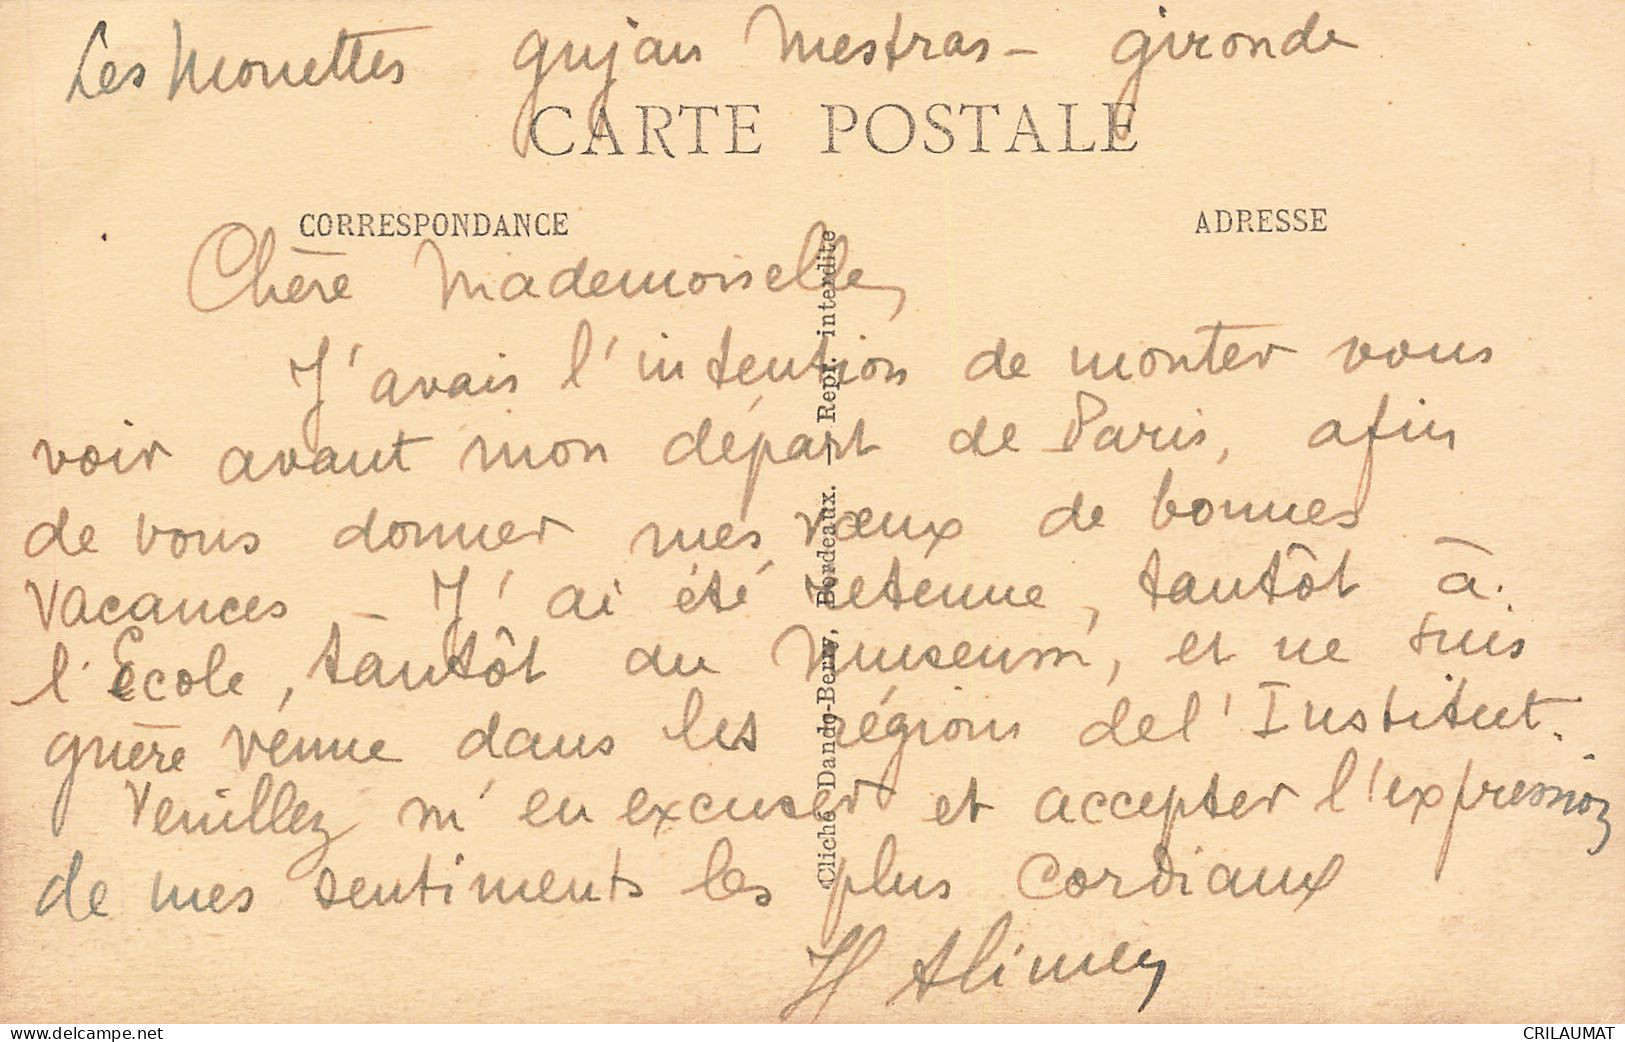 Les Mouettes gujan Mestras - gironde
CARTE POSTALE
CORRESPONDANCE
ADRESSE
Chère Mademoiselle,
J'avais l'intention de monter vous
voir avant mon départ de Paris, afin
de vous donner mes vœux de bonnes
vacances - J'ai été retenue, tantôt à
l'École, tantôt au Museum, et ne suis
guère venue dans les régions de l'Institut.
Veuillez m'en excuser et accepter l'expression
de mes sentiments les plus cordiaux
H Alimen
Cliché Dando-Berry, Bordeaux. — Repr. interdite
www.delcampe.net
CRILAUMAT